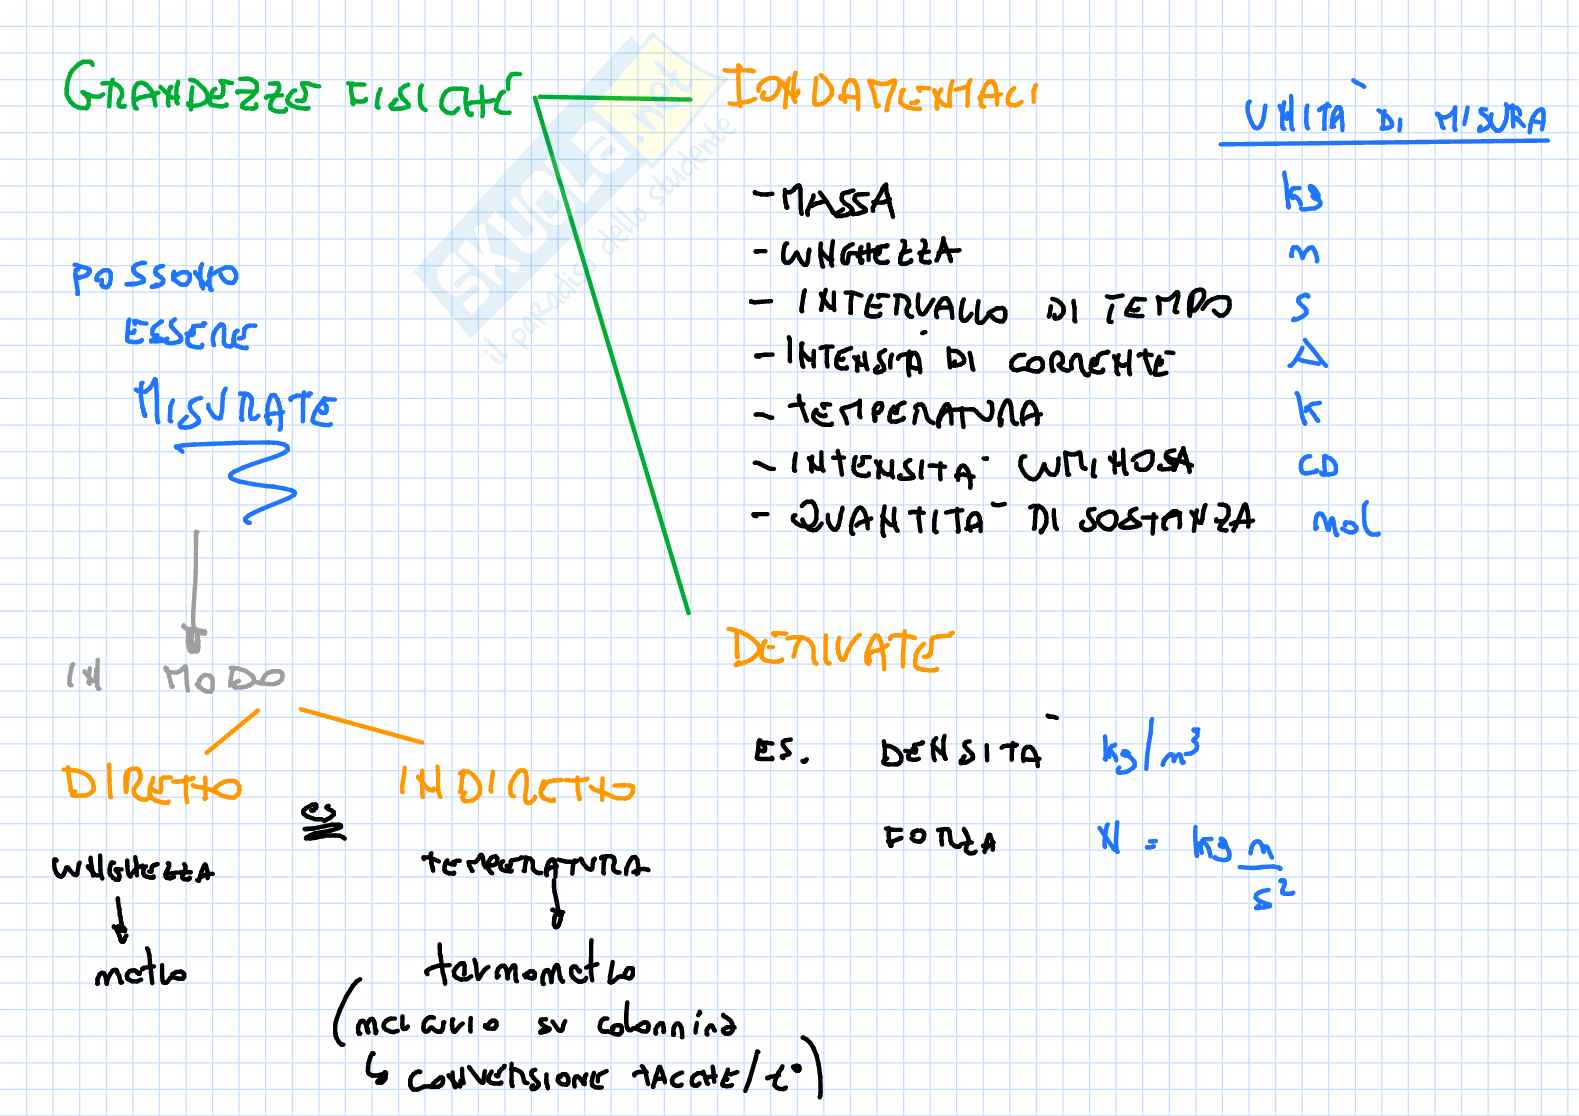 GRANDEZZE FISICHE
FONDAMENTALI
UNITÀ DI MISURA
- MASSA kg
- LUNGHEZZA m
- INTERVALLO DI TEMPO s
- INTENSITÀ DI CORRENTE A
- TEMPERATURA K
- INTENSITÀ LUMINOSA CD
- QUANTITÀ DI SOSTANZA mol
POSSONO
ESSERE
MISURATE
IN MODO
DIRETTO
INDIRETTO
es
LUNGHEZZA
metro
TEMPERATURA
termometro
(mercurio su colonnina
↳ CONVERSIONE TACCHE/t°)
DERIVATE
ES. DENSITÀ kg/m³
FORZA N = kg m/s²
SKUOLA.net
il paradiso dello studente